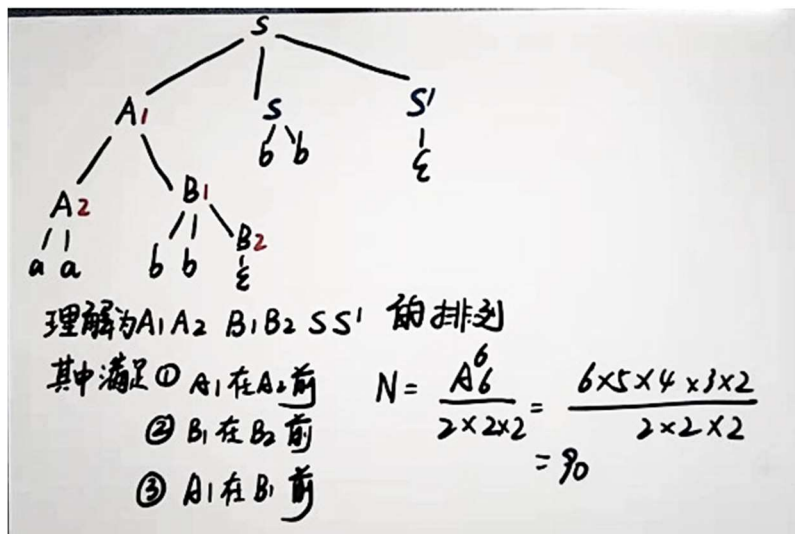 S
A1 S S'
b b ε
A2 B1
a a b b B2
ε
理解为A1A2 B1B2 SS' 的排列
其中满足① A1在A2前
② B1在B2前
③ A1在B1前
N = A⁶₆ / 2×2×2 = 6×5×4×3×2 / 2×2×2
= 90